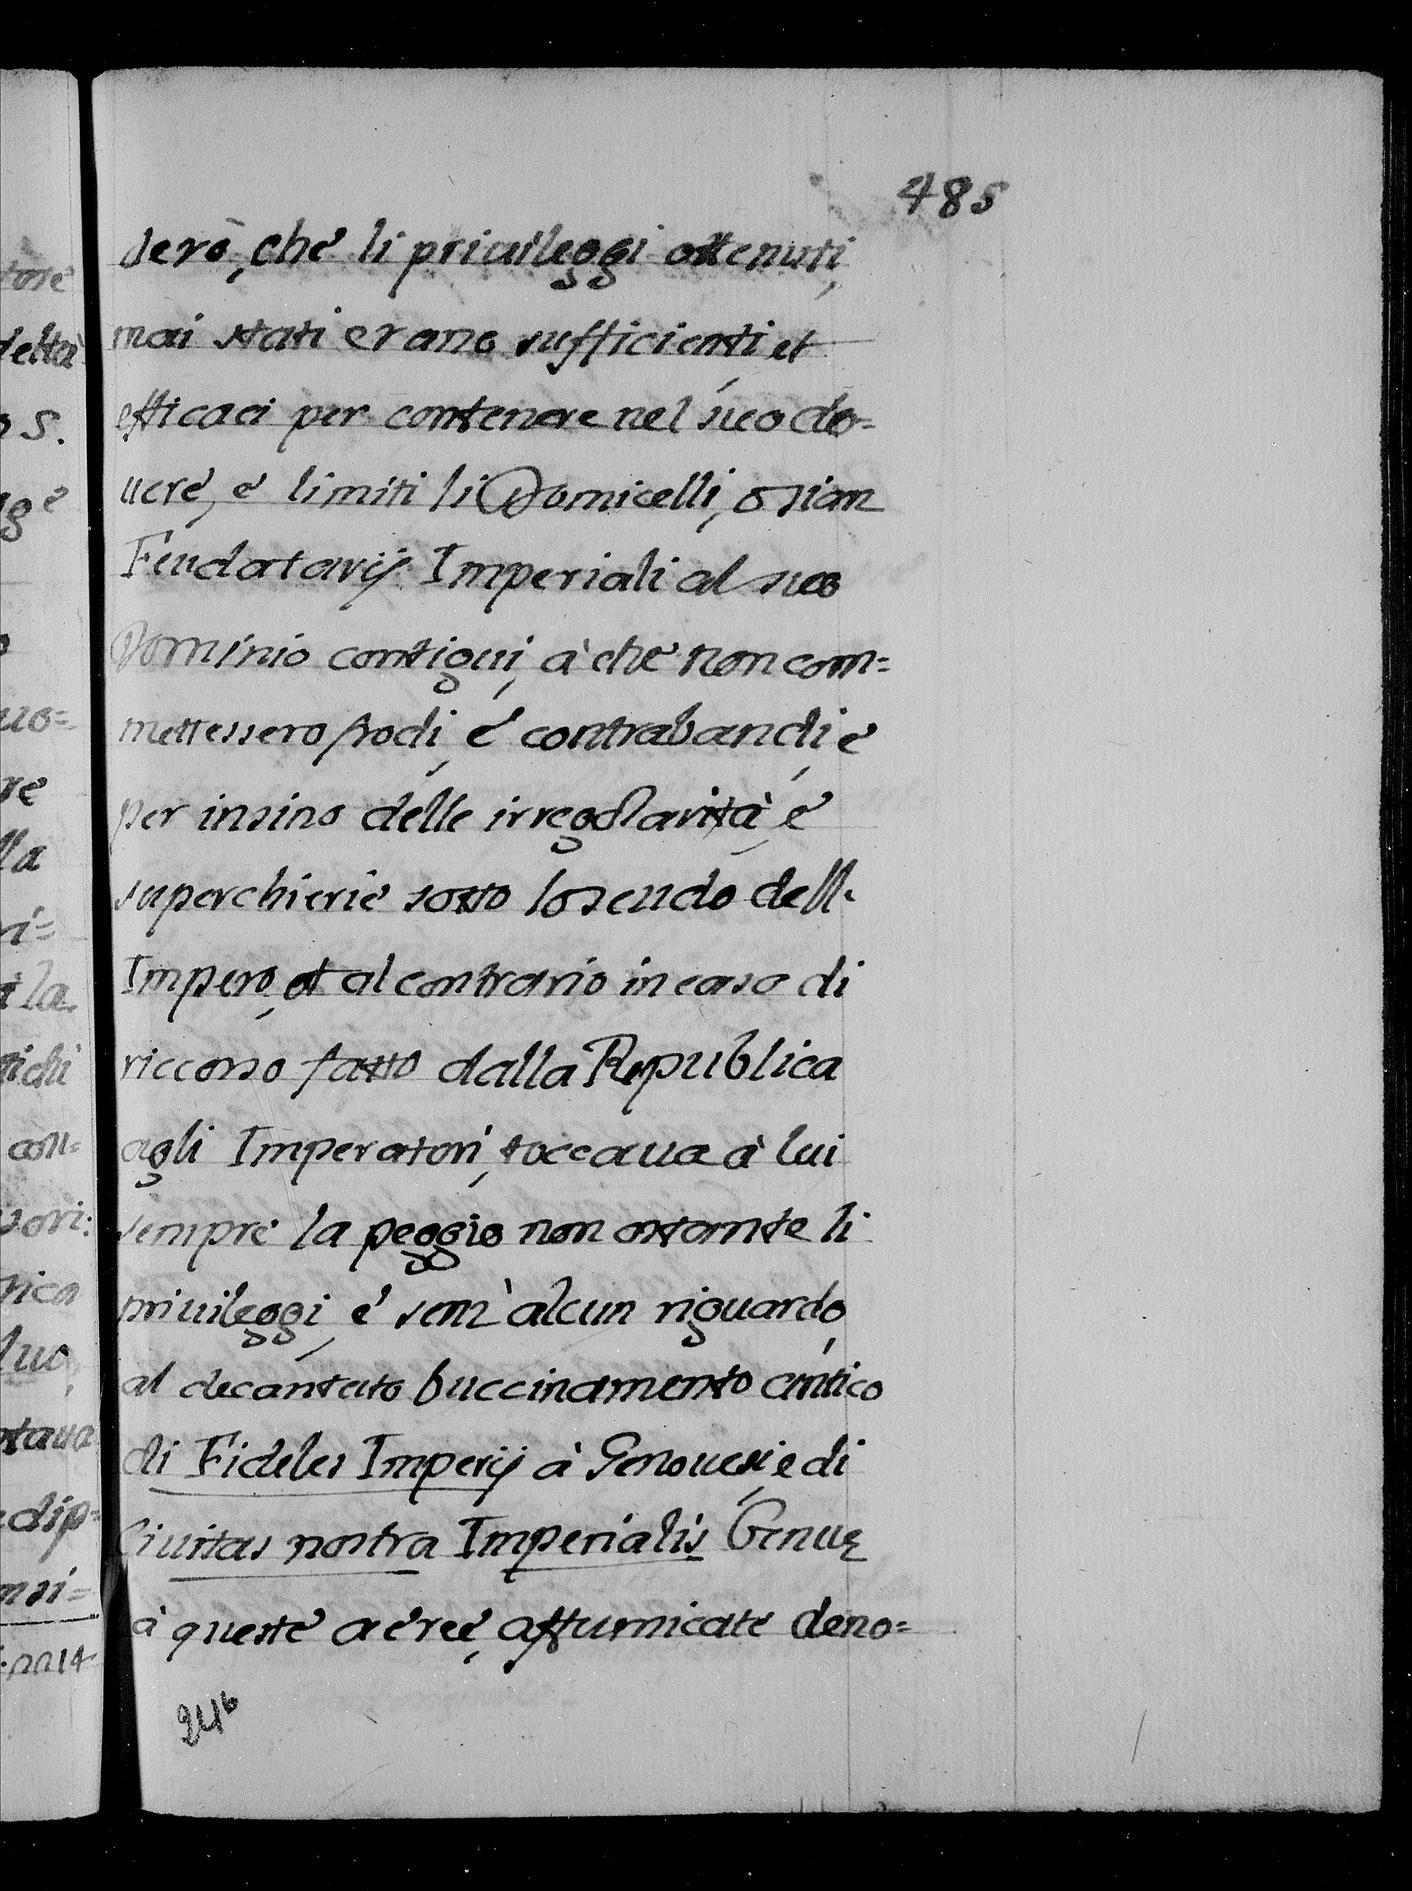 485
derò, che li priuileggi ottenuti,
mai stati erano sufficienti, et
efficaci per contenere nel suo do=
uere, e limiti li Domicelli, o sian
Feudatarij Imperiali al suo
Dominio contigui, à che non com=
mettessero frodi, e contrabandi, e
per insino delle irregolarità, e
superchierie sotto lo scudo dell'
Impero, et al contrario in caso di
riccorso fatto dalla Republica
agli Imperatori, toccaua à lui
sempre la peggio non ostante li
priuileggi, e senz'alcun riguardo,
al decantato buccinamento antico
di Fideles Imperij à Genouesi, e di
Ciuitas nostra Imperialis Genuę
à queste aeree, affumicate deno=
246
tore
deltà
o S.
ge
uo=
re
lla
ri=
la
tichi
con=
uori:
rica
luo,
ntaua
dip=
nsi=